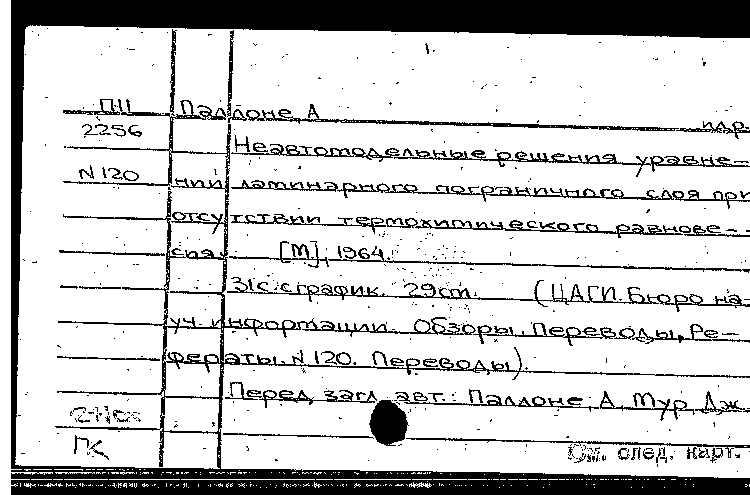 1.
П11 Паллоне, А и др.
2256 Неавтомодельные решения уравне-
N 120 ний ламинарного пограничного слоя при
отсутствии термохимического равнове-
сия. [М], 1964.
31с. с график. 29см. (ЦАГИ. Бюро на-
уч. информации. Обзоры. Переводы, Ре-
фераты. N 120. Переводы).
Перед загл. авт.: Паллоне, А, Мур, Дж.
ГК См. след. карт.